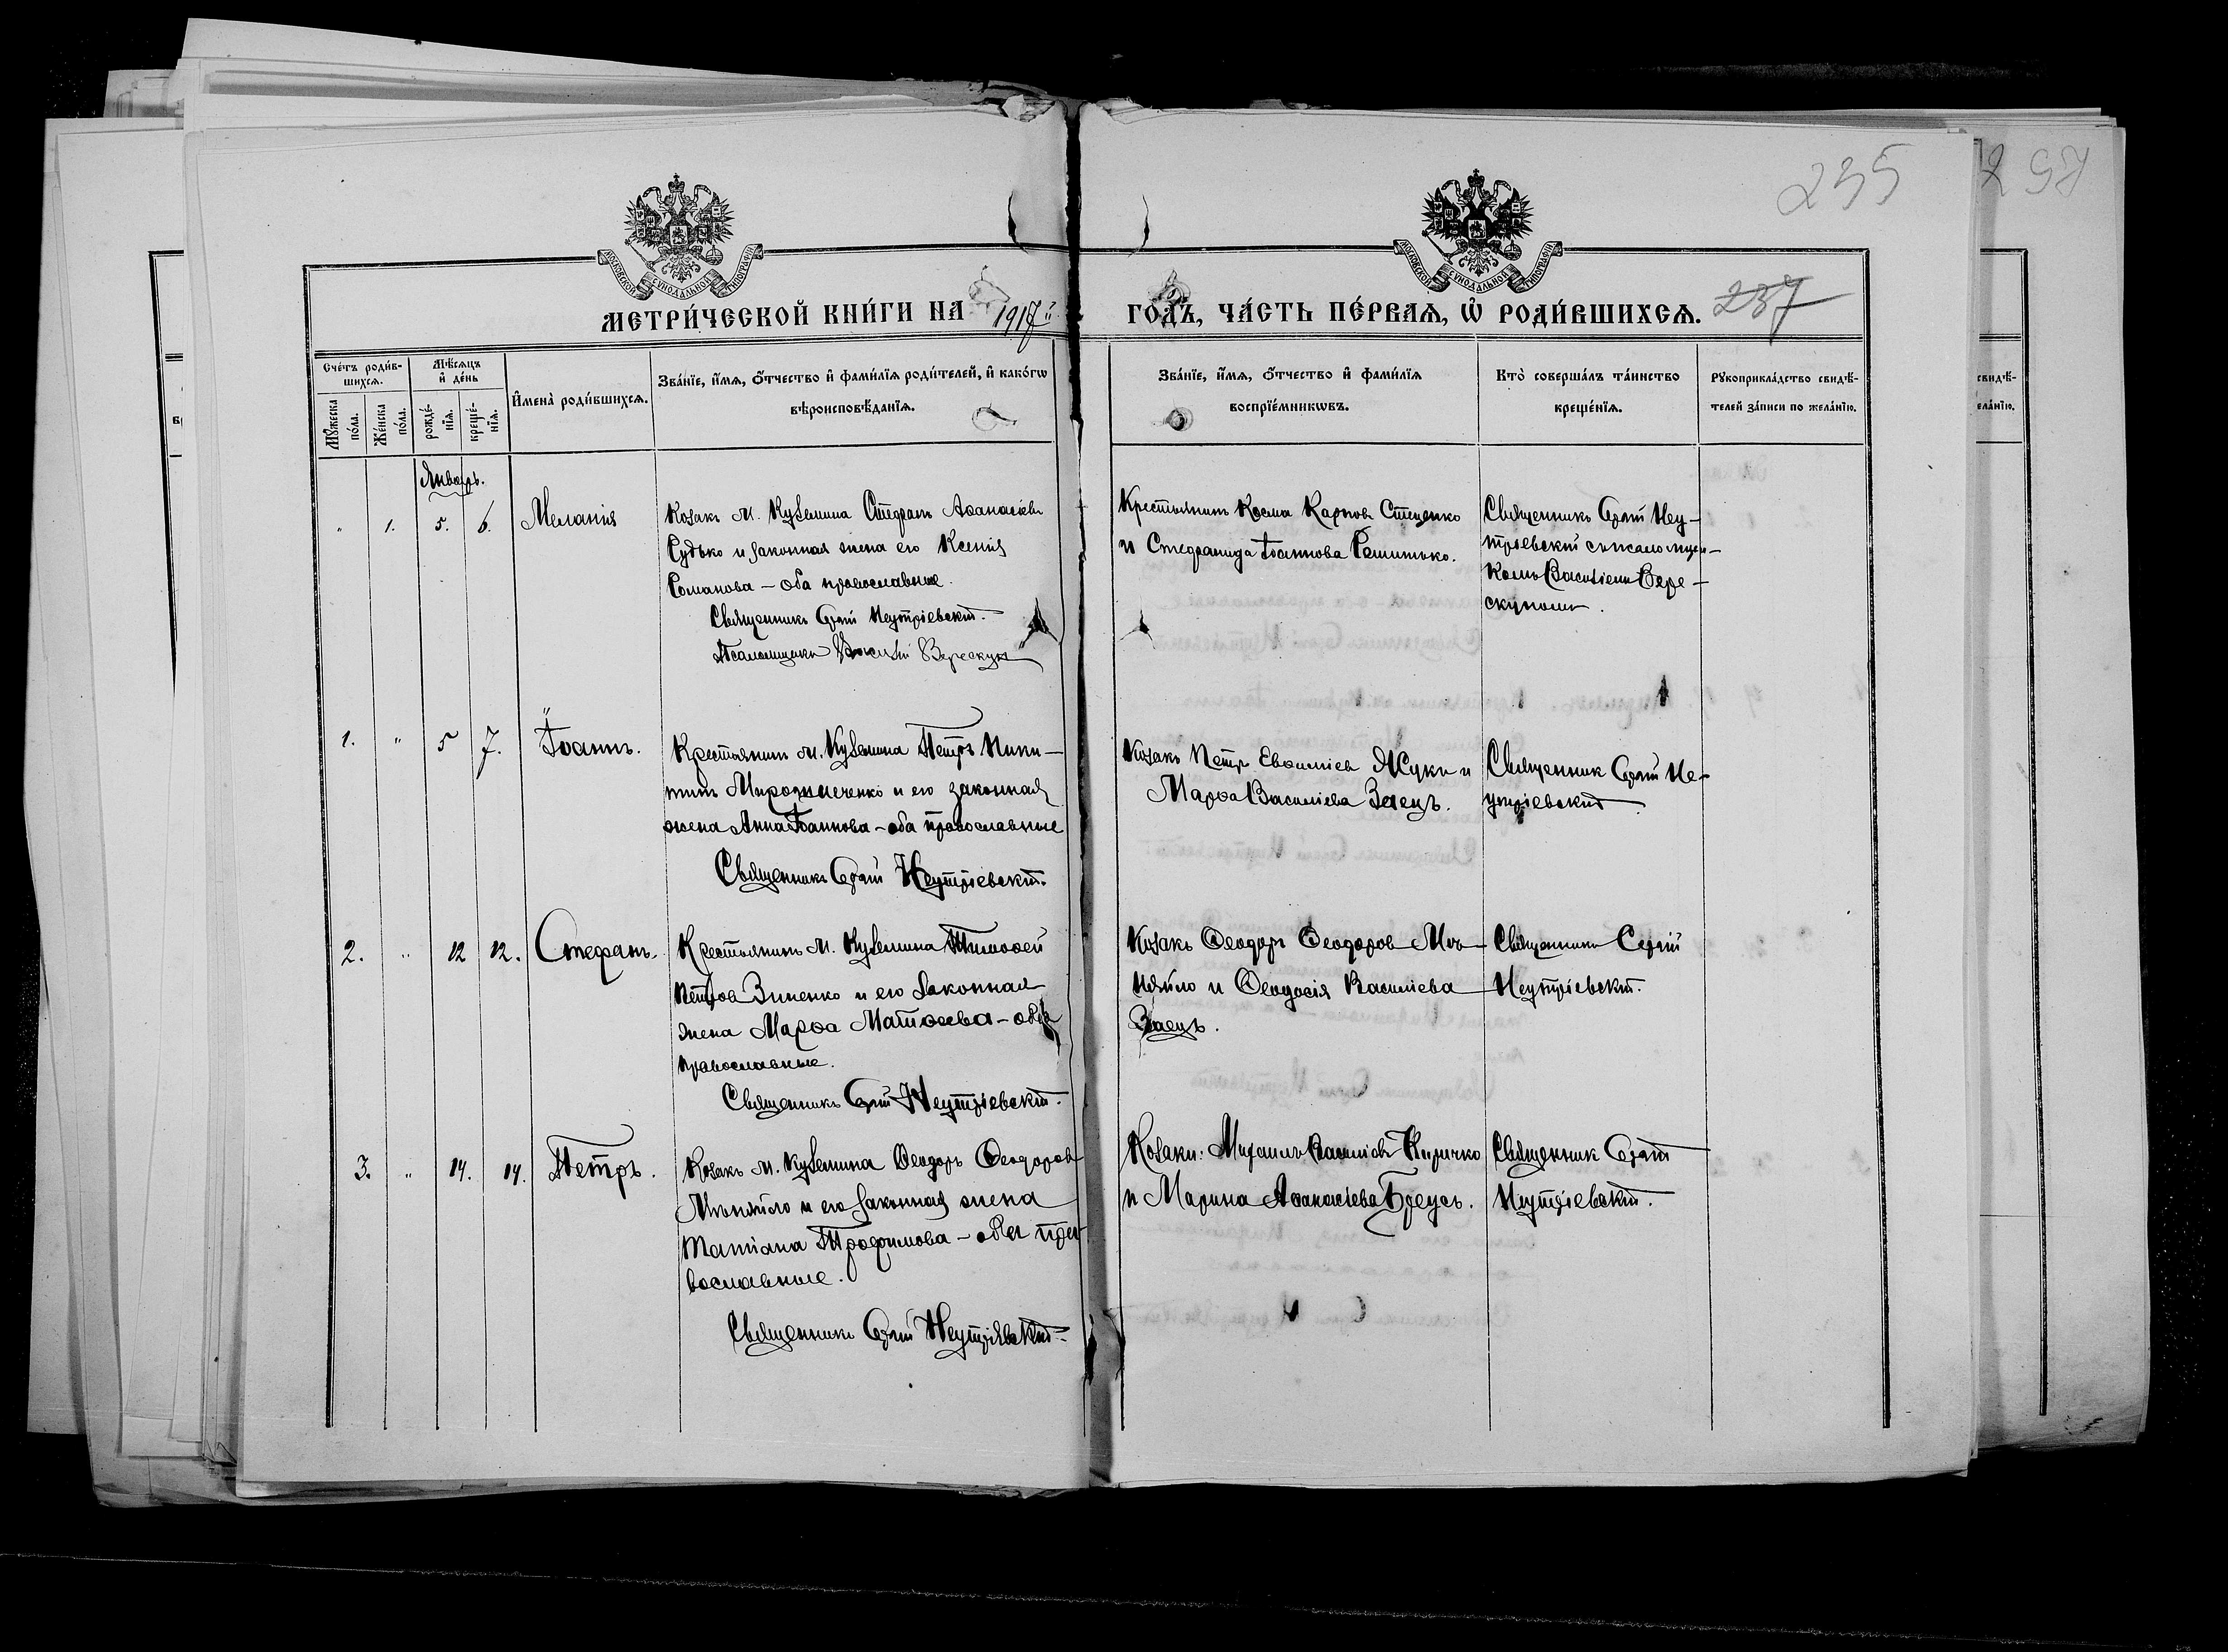 235
МОСКОВСКОЙ СѴНОДАЛЬНОЙ ТИПОГРАФІИ
МОСКОВСКОЙ СѴНОДАЛЬНОЙ ТИПОГРАФІИ
МЕТРИ́ЧЕСКОЙ КНИ́ГИ НА 1917й
ГО́ДЪ, ЧА́СТЬ ПЕ́РВАЯ, Ѡ҆ РОДИ́ВШИХСЯ.
237
Сче́тъ роди́в-
шихся.
Мѣ́сяцъ
и҆ де́нь
Мꙋ́жеска
по́ла.
Же́нска
по́ла.
рожде́-
нїя.
креще́-
нїя.
И҆мена̀ роди́вшихся.
Зва́нїе, и҆́мя, ѻ҆́тчество и҆ фами́лїя роди́телей, и҆ како́гѡ
вѣроисповѣ́данїя.
Зва́нїе, и҆́мя, ѻ҆́тчество и҆ фами́лїя
воспрїе́мникѡвъ.
Кто̀ соверша́лъ та́инство
креще́нїя.
Рꙋкоприкла́дство свидѣ́-
телей за́писи по жела́нїю.
Январь.
" 1. 5. 6. Меланія
Козакъ м. Куземина Стефанъ Аѳанасіевъ
Судько и законная жена его Ксенія
Романова – оба православные.
Священникъ Сергій Неутріевскій.
Псаломщикъ Василій Верескунъ
Крестьянинъ Косма Карпов Стеценко
и Стефанида Іоаннова Решитько.
Священникъ Сергій Неу-
тріевскій съ псаломщи-
комъ Василіемъ Вере-
скуномъ.
1. " 5 7. Іоаннъ.
Крестьянинъ м. Куземина Петръ Ники-
тинъ Мирошниченко и его законная
жена Анна Іоаннова – оба православные
Священникъ Сергій Неутріевскій.
Козакъ Петр Евѳиміев Жукъ и
Марѳа Василіева Заецъ.
Священник Сергій Не-
утріевскій.
2. " 12 12. Стефанъ.
Крестьянинъ м. Куземина Тимоѳей
Петров Зиненко и его законная
жена Марѳа Матѳеева – оба
православные.
Священникъ Сергій Неутріевскій.
Козакъ Ѳеодоръ Ѳеодоров Мѣ-
няйло и Ѳеодосія Василіева
Заецъ.
Священникъ Сергій
Неутріевскій.
3. " 14. 14. Петръ.
Козакъ м. Куземина Ѳеодоръ Ѳеодоров
Мѣняйло и его законная жена
Татіана Трофимова – оба пра-
вославные.
Священникъ Сергій Неутріевскій.
Козаки: Михаилъ Василіевъ Киричко
и Марина Аѳанасіева Бреусъ.
Священник Сергій
Неутріевскій.